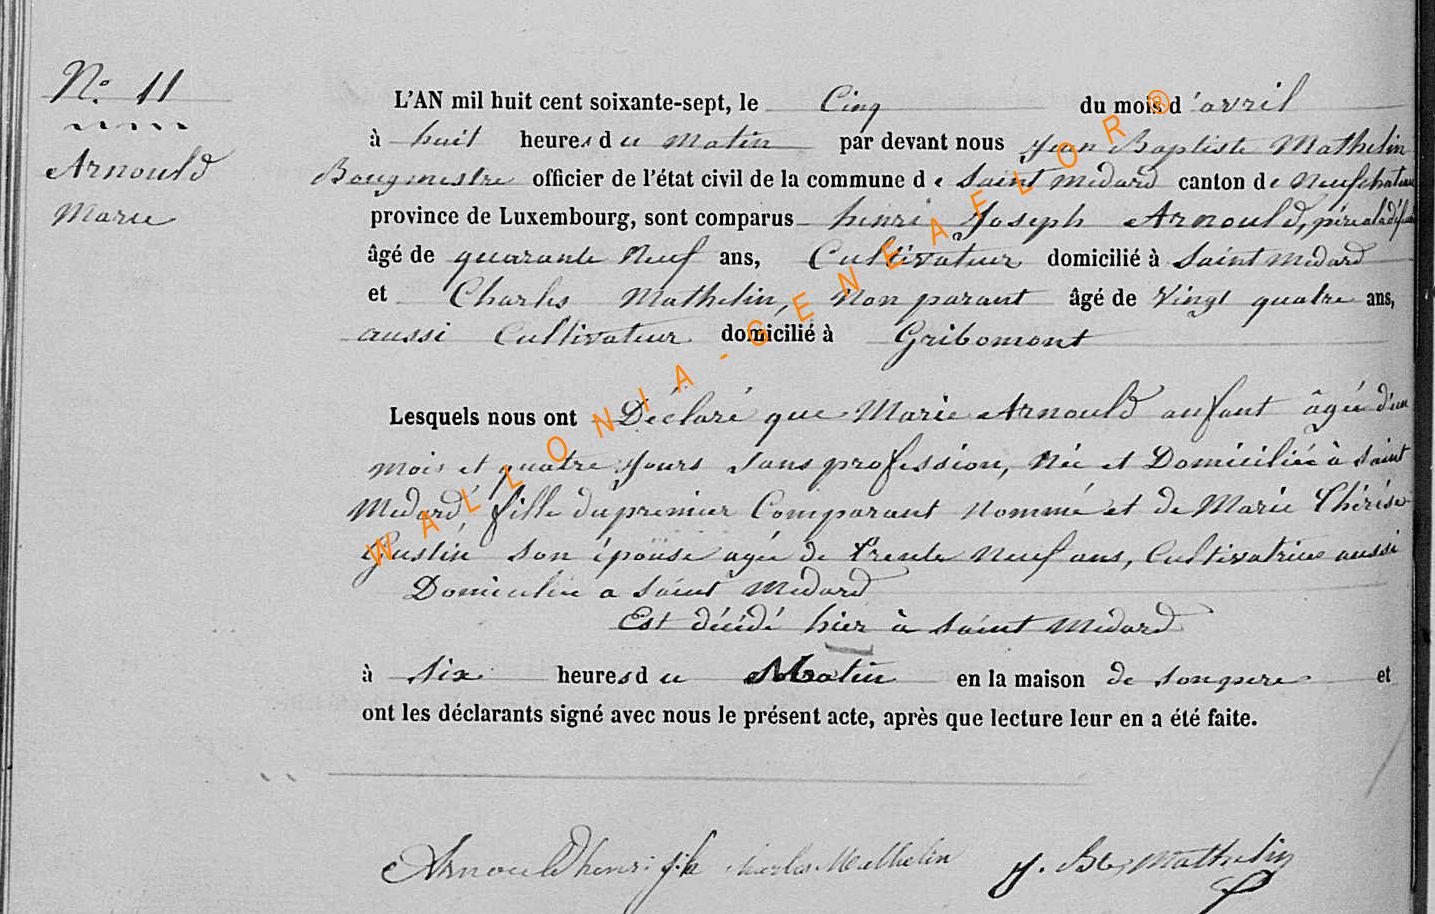 N° 11
Arnould
Marie
L'AN mil huit cent soixante-sept, le Cinq du mois d'avril
à huit heures du matin par devant nous Jean Baptiste Mathelin
Bougmestre officier de l'état civil de la commune de Saint Medard canton de Neufchateau
province de Luxembourg, sont comparus henri Joseph Arnould, père a la
âgé de quarante Neuf ans, Cultivateur domicilié à Saint Medard
et Charles Mathelin, Non parant âgé de Vingt quatre ans,
aussi Cultivateur domicilié à Gribomont
Lesquels nous ont Déclaré que Marie Arnould anfant âgée d'un
mois et quatre Jours sans profession, Née et Domiciliée à Saint
Medard fille du premier Comparant nommé et de Marie Thérèse
Gustin son épouse agée de trente Neuf ans, Cultivatrice aussi
Domiciliée a Saint Medard
Est décédé hier à Saint Medard
à Six heures du Matin en la maison de son pere et
ont les déclarants signé avec nous le présent acte, après que lecture leur en a été faite.
Arnould henri jph Charles Mathelin J. Bte Mathelin
WALLONIA-GENEALOR®